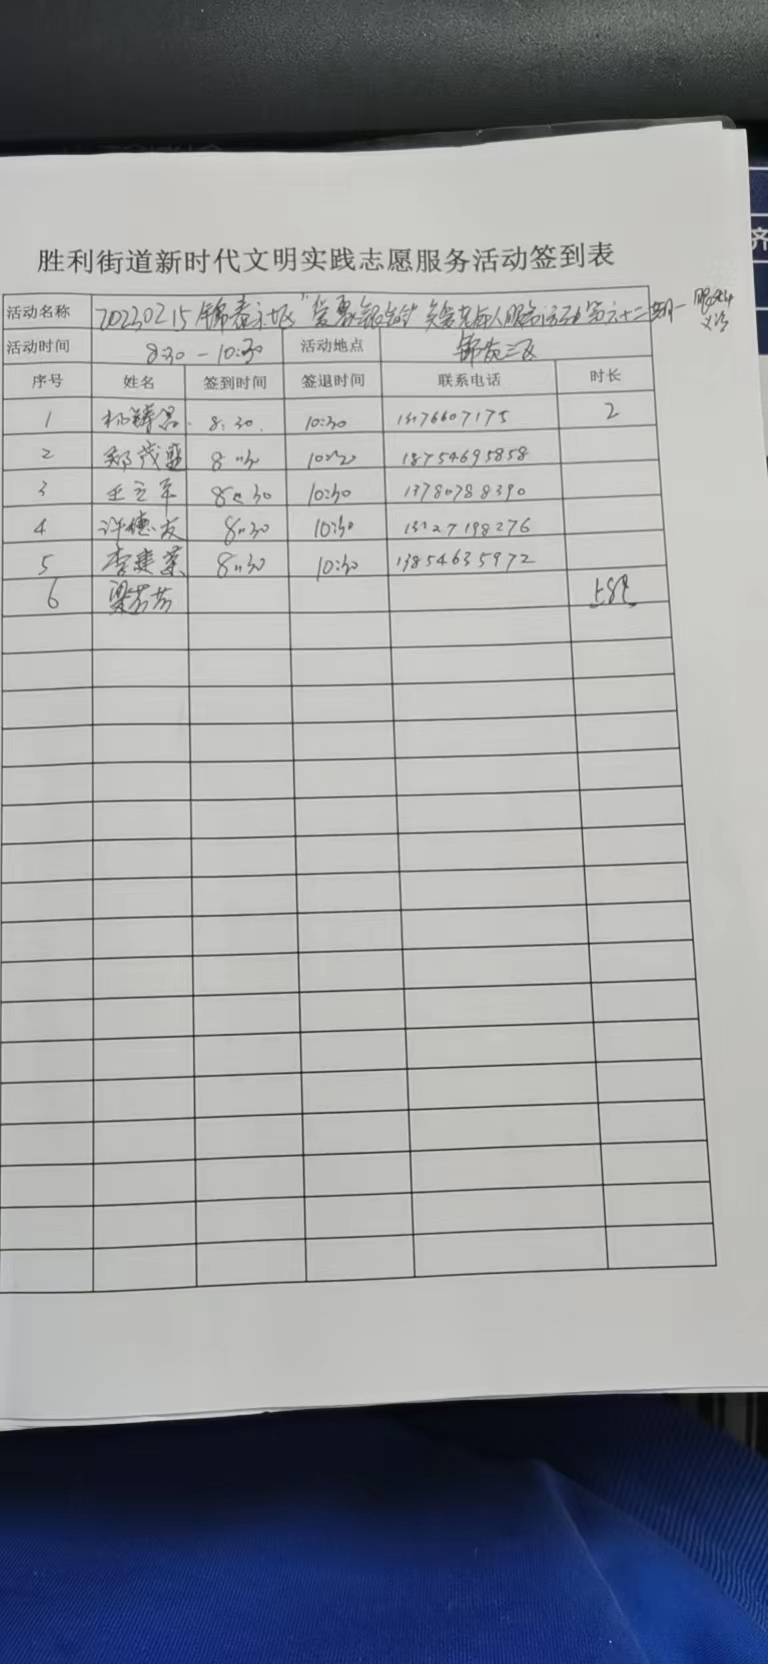 胜利街道新时代文明实践志愿服务活动签到表
活动名称 20230215锦春社区"爱暮银龄"关爱老年人服务活动第六十二期一
义诊
活动时间 8:30-10:30 活动地点 锦苑三区
序号 姓名 签到时间 签退时间 联系电话 时长
1 8:30. 10:30 13176607175 2
2 郑茂 8:30 10:30 18754695858
3 王立军 8:30 10:30 13780788390
4 许德友 8:30 10:30 13127198276
5 李建 8:30 10:30 13854635972
6 梁芳芳
齐